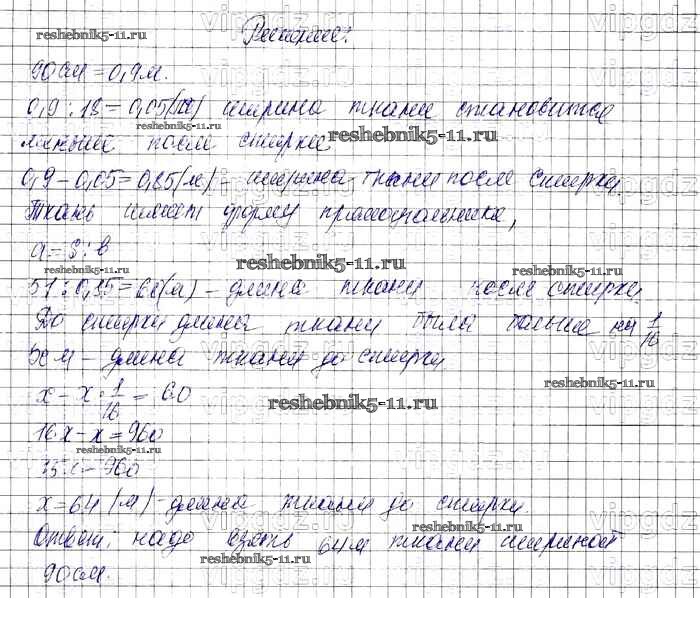 reshebnik5-11.ru
vipgdz
Решение:
90 см = 0,9 м.
0,9 : 18 = 0,05 (м) ширина ткани становится
меньше после стирки
reshebnik5-11.ru
0,9 - 0,05 = 0,85 (м) - ширина ткани после стирки.
Ткань имеет форму прямоугольника,
a = S : в
reshebnik5-11.ru
reshebnik5-11.ru
reshebnik5-11.ru
51 : 0,85 = 60 (м) - длина ткани после стирки.
До стирки длина ткани была больше на 1/16
х м - длина ткани до стирки
reshebnik5-11.ru
x - x · 1/16 = 60
reshebnik5-11.ru
16x - x = 960
reshebnik5-11.ru
15x = 960
x = 64 (м) - длина ткани до стирки.
reshebnik5-11.ru
Ответ: надо взять 64 м ткани шириной
reshebnik5-11.ru
90 см.